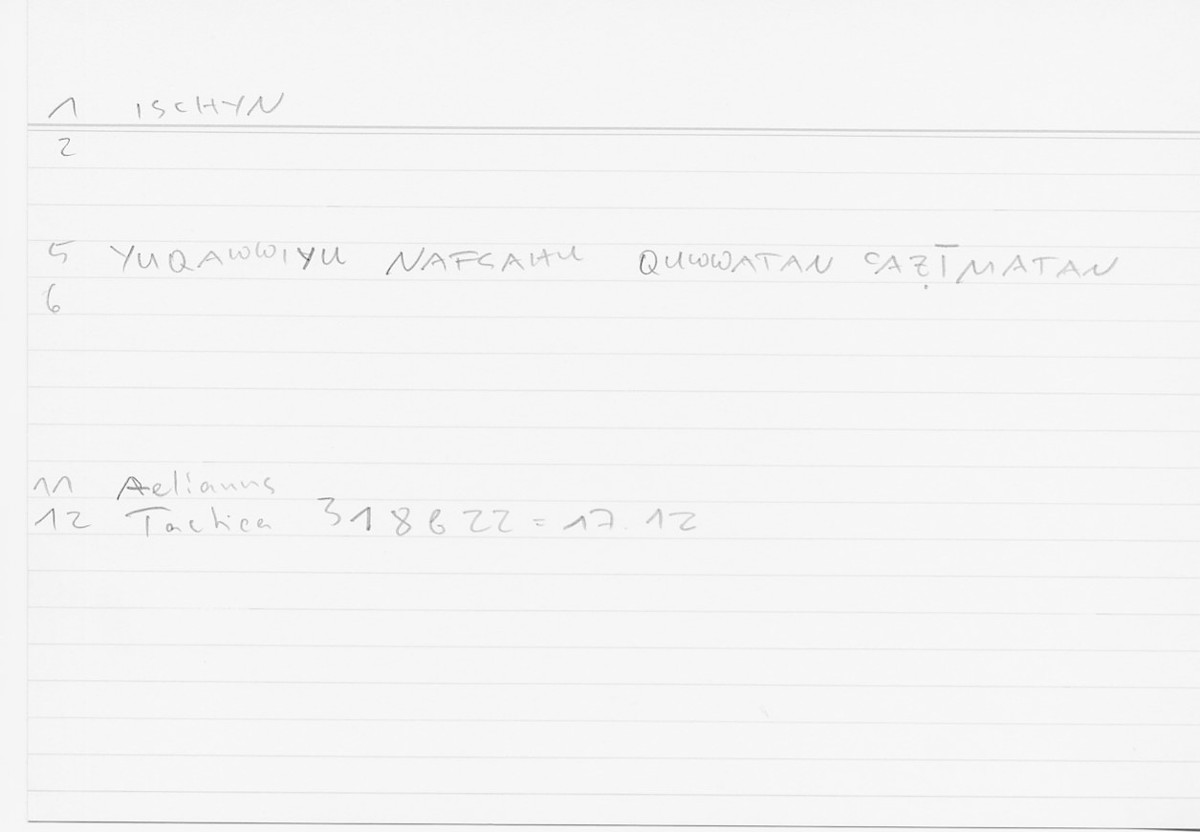 1 ISCHYN
2
5 YUQAWWIYU NAFSAHU QUWWATAN ʿAẒĪMATAN
6
11 Aelianus
12 Tactica 318622 = 17.12